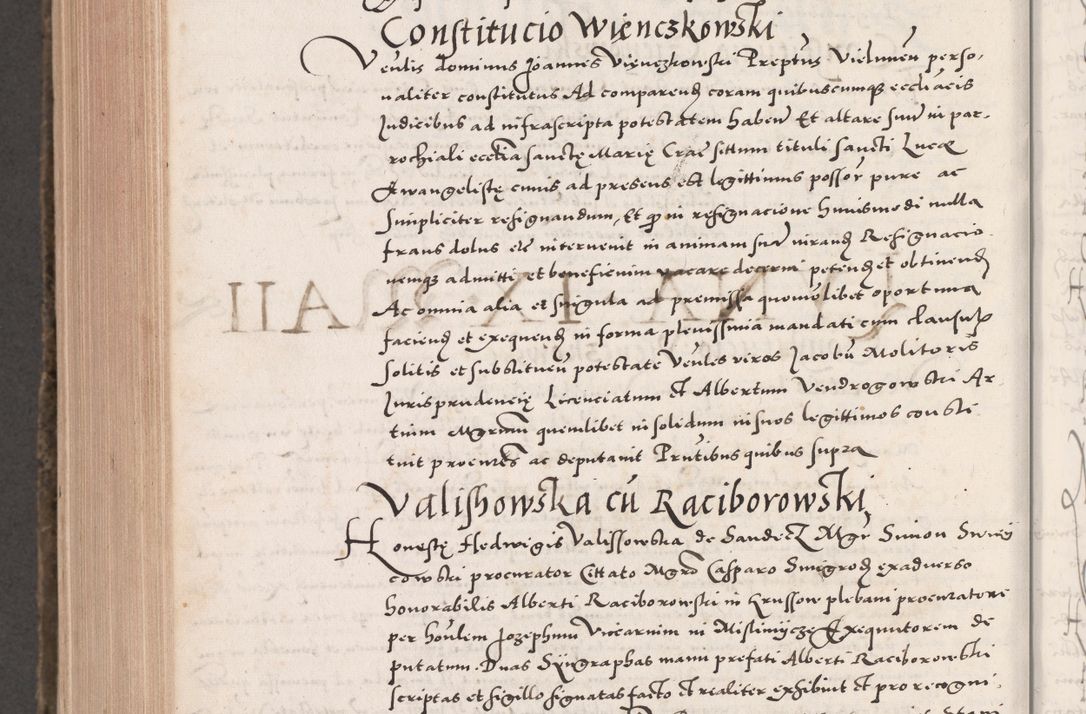 Constitucio Wienczkowski
Venlis dominus Joannes Vienczkowski Preptus Vielunen perso-
naliter constitutus Ad comparend coram quibuscumque eccliacis
Judicibus ad infrascripta potestatem haben Et altare suum in par-
rochiali ecclia sanctę Marię Crac sittum tituli sancti Lucæ
Ewangelistę cuius ad presens est legittimus possor pure ac
simpliciter resignandum, Et q in resignacione huiusmodi nulla
fraus dolus etc intervenit in animam sua iurand Resignacio
nemque admitti et beneficium vacare decerni petend et obtinend
Ac omnia alia et singula ad premissa quomolibet oportuna
faciend et exequend in forma plenissima mandati cum clausulis
solitis et substituen potestate Venles viros Jacobum Molitoris
Jurisprudencię Licenciatum et Albertum Vendrogowski Ar-
tium Mgrum quemlibet in solidum in suos legittimos consti
tuit procures ac deputavit Prntibus quibus supra
Valishowska cum Raciborowski
Honestę Hedwigis Valissowska de Sandecz Mgr Simon
cowski procurator Cittato Mgro Casparo Smigrod exadverso
honorabilis Alberti Raciborowski in Krussow plebani procuratore
per honlem Josephum Vicearium in Mislimyczę Exequutorem de
putatum. Duas Syngraphas manu prefati Alberti Raciborowski
scriptas et sigillo signatas facto et realiter exhibuit et pro recogni-